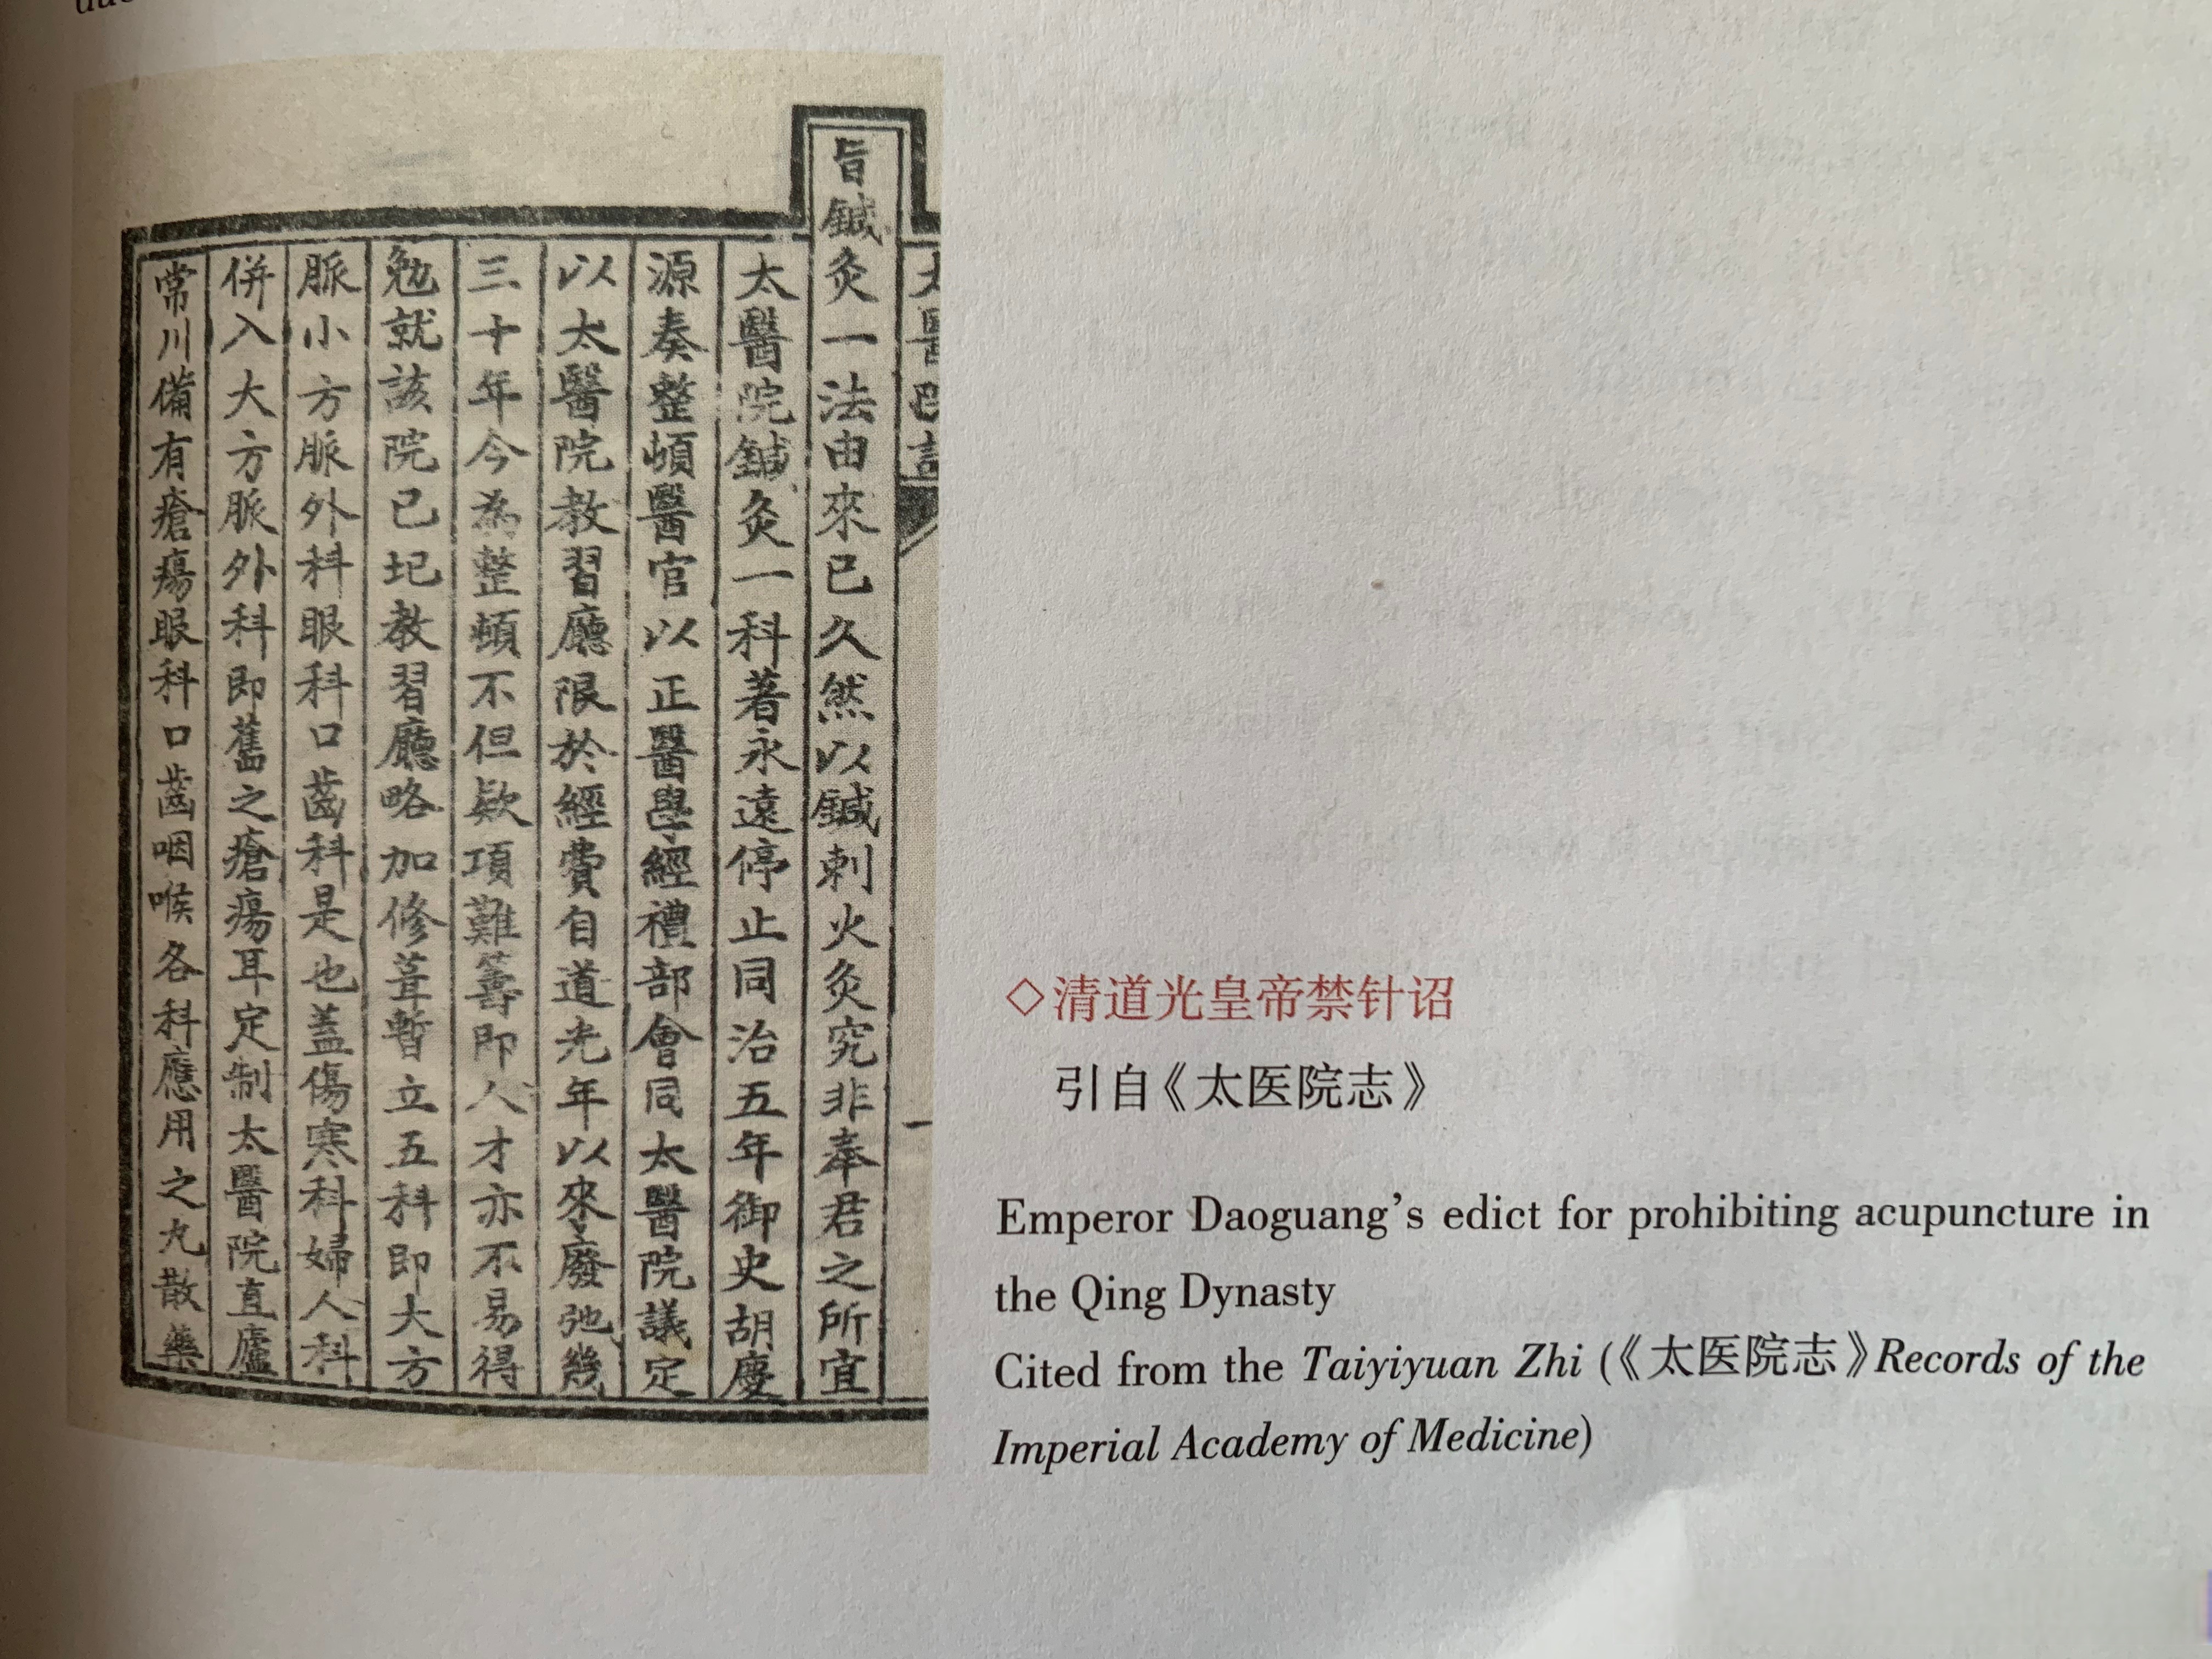 旨鍼灸一法由來已久然以鍼刺火灸究非奉君之所宜
太醫院鍼灸一科著永遠停止同治五年御史胡慶
源奏整頓醫官以正醫學經禮部會同太醫院議定
以太醫院教習廳限於經費自道光年以來廢弛幾
三十年今為整頓不但欵項難籌即人才亦不易得
勉就該院已圮教習廳略加修葺暫立五科即大方
脈小方脈外科眼科口齒科是也蓋傷寒科婦人科
併入大方脈外科即舊之瘡瘍耳定制太醫院直廬
常川備有瘡瘍眼科口齒咽喉各科應用之丸散藥
◇清道光皇帝禁针诏
引自《太医院志》
Emperor Daoguang's edict for prohibiting acupuncture in
the Qing Dynasty
Cited from the Taiyiyuan Zhi (《太医院志》Records of the
Imperial Academy of Medicine)